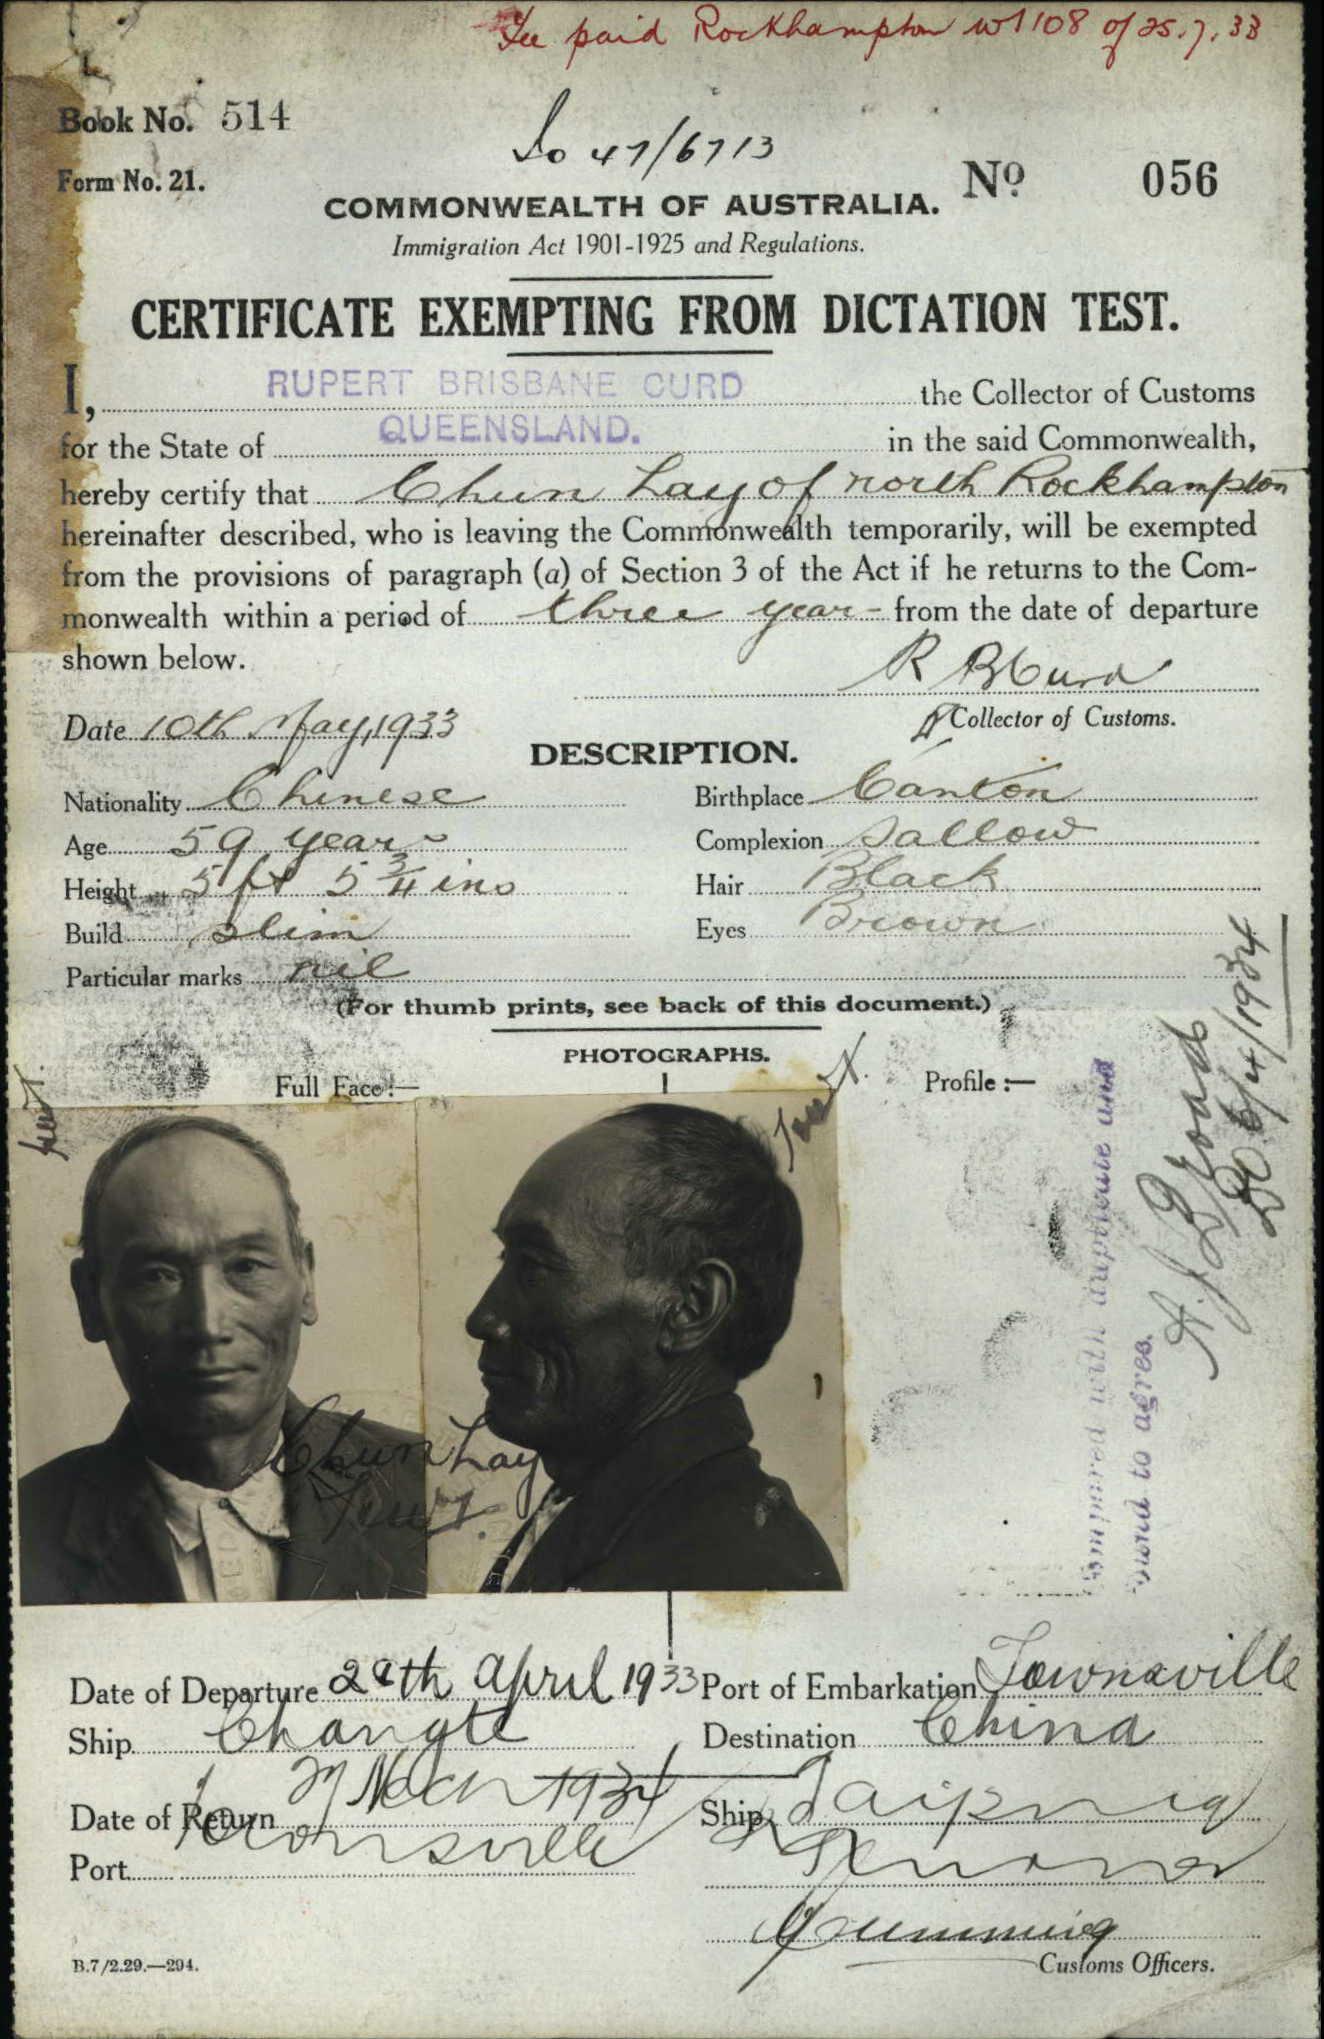 Fee paid Rockhampton of 25.7.33
Book No. 514
47/6713
Form No. 21.
No 056
COMMONWEALTH OF AUSTRALIA.
Immigration Act 1901-1925 and Regulations.
CERTIFICATE EXEMPTING FROM DICTATION TEST.
I, RUPERT BRISBANE CURD the Collector of Customs
for the State of QUEENSLAND. in the said Commonwealth,
hereby certify that Chun Lay of north Rockhampton
hereinafter described, who is leaving the Commonwealth temporarily, will be exempted
from the provisions of paragraph (a) of Section 3 of the Act if he returns to the Com-
monwealth within a period of three year from the date of departure
shown below.
R B Curd
Collector of Customs.
Date 10th May, 1933
DESCRIPTION.
Nationality Chinese Birthplace Canton
Age 59 years Complexion Sallow
Height 5 ft 5 3/4 ins Hair Black
Build slim Eyes Brown
Particular marks nil
(For thumb prints, see back of this document.)
PHOTOGRAPHS.
Full Face:— Profile:—
Compared with duplicate and
found to agree.
6/4/1934
Chun Lay
Date of Departure 29th April 1933 Port of Embarkation Townsville
Ship Changte Destination China
Date of Return 27 March 1934 Ship Taiping
Port Townsville
Cumming
Customs Officers.
B.7/2.29.—294.